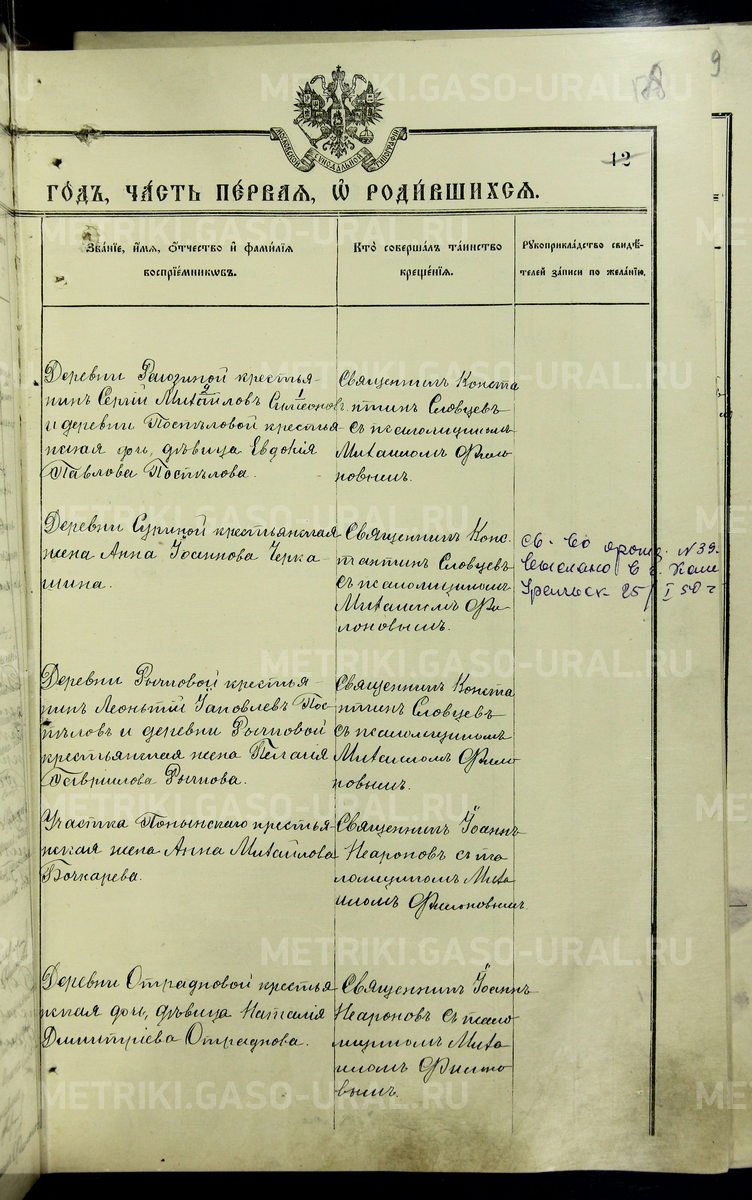 9
178
МОСКОВСКОЙ СѴНОДАЛЬНОЙ ТИПОГРАФІИ
12
ГОДЪ, ЧАСТЬ ПЕРВАЯ, Ѡ РОДИВШИХСЯ.
Званіе, имя, отчество и фамилія
воспріемниковъ.
Кто совершалъ таинство
крещенія.
Рукоприкладство свидѣ-
телей записи по желанію.
Деревни крестья-
нинъ Сергій Михайловъ Симеонов
2 1
и деревни Постѣловой крестья
нская дочь, дѣвица Евдокія
Павлова Постѣлова.
Священникъ Конста
нтинъ Словцевъ
съ псаломщикомъ
Михаиломъ Фило
новымъ.
Деревни Суриной крестьянская
жена Анна Іоаннова Черка
шина.
Священникъ Конс.
тантинъ Словцевъ
съ псаломщикомъ
Михаиломъ Фи
лоновымъ.
св-во о рожд. N 39.
выслано в г. Каме
Уральск 25/I 50 г
Деревни Рычковой крестья-
нинъ Леонтій Іаковлевъ Пос
тѣловъ и деревни Рычковой
крестьянская жена Пелагія
Гавриилова Рычкова.
Священникъ Конста
нтинъ Словцевъ
съ псаломщикомъ
Михаиломъ Фило
новымъ.
Участка крестья
нская жена Анна Михайлова
Бочкарева.
Священникъ Іоаннъ
Неароновъ съ пса
ломщикомъ Миха
иломъ Филоновымъ.
Деревни Отрадновой крестья
нская дочь, дѣвица Наталія
Димитріева Отраднова.
Священникъ Іоаннъ
Неароновъ съ псало
мщикомъ Миха
иломъ Фило
вымъ.
METRIKI.GASO-URAL.RU